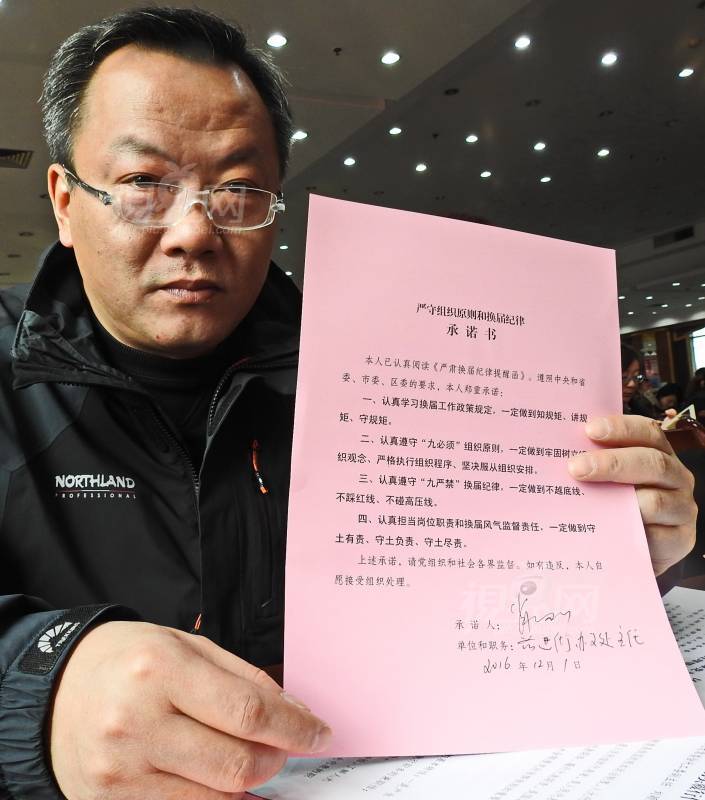 严守组织原则和换届纪律
承诺书
本人已认真阅读《严肃换届纪律提醒函》。遵照中央和省
委、市委、区委的要求，本人郑重承诺：
一、认真学习换届工作政策规定，一定做到知规矩、讲规
矩、守规矩。
二、认真遵守“九必须”组织原则，一定做到牢固树立
织观念、严格执行组织程序、坚决服从组织安排。
三、认真遵守“九严禁”换届纪律，一定做到不越底线、
不踩红线、不碰高压线。
四、认真担当岗位职责和换届风气监督责任，一定做到守
土有责、守土负责、守土尽责。
上述承诺，请党组织和社会各界监督。如有违反，本人自
愿接受组织处理。
承诺人：
单位和职务： 办 主任
2016 年 12 月 1 日
NORTHLAND
PROFESSIONAL
視 网